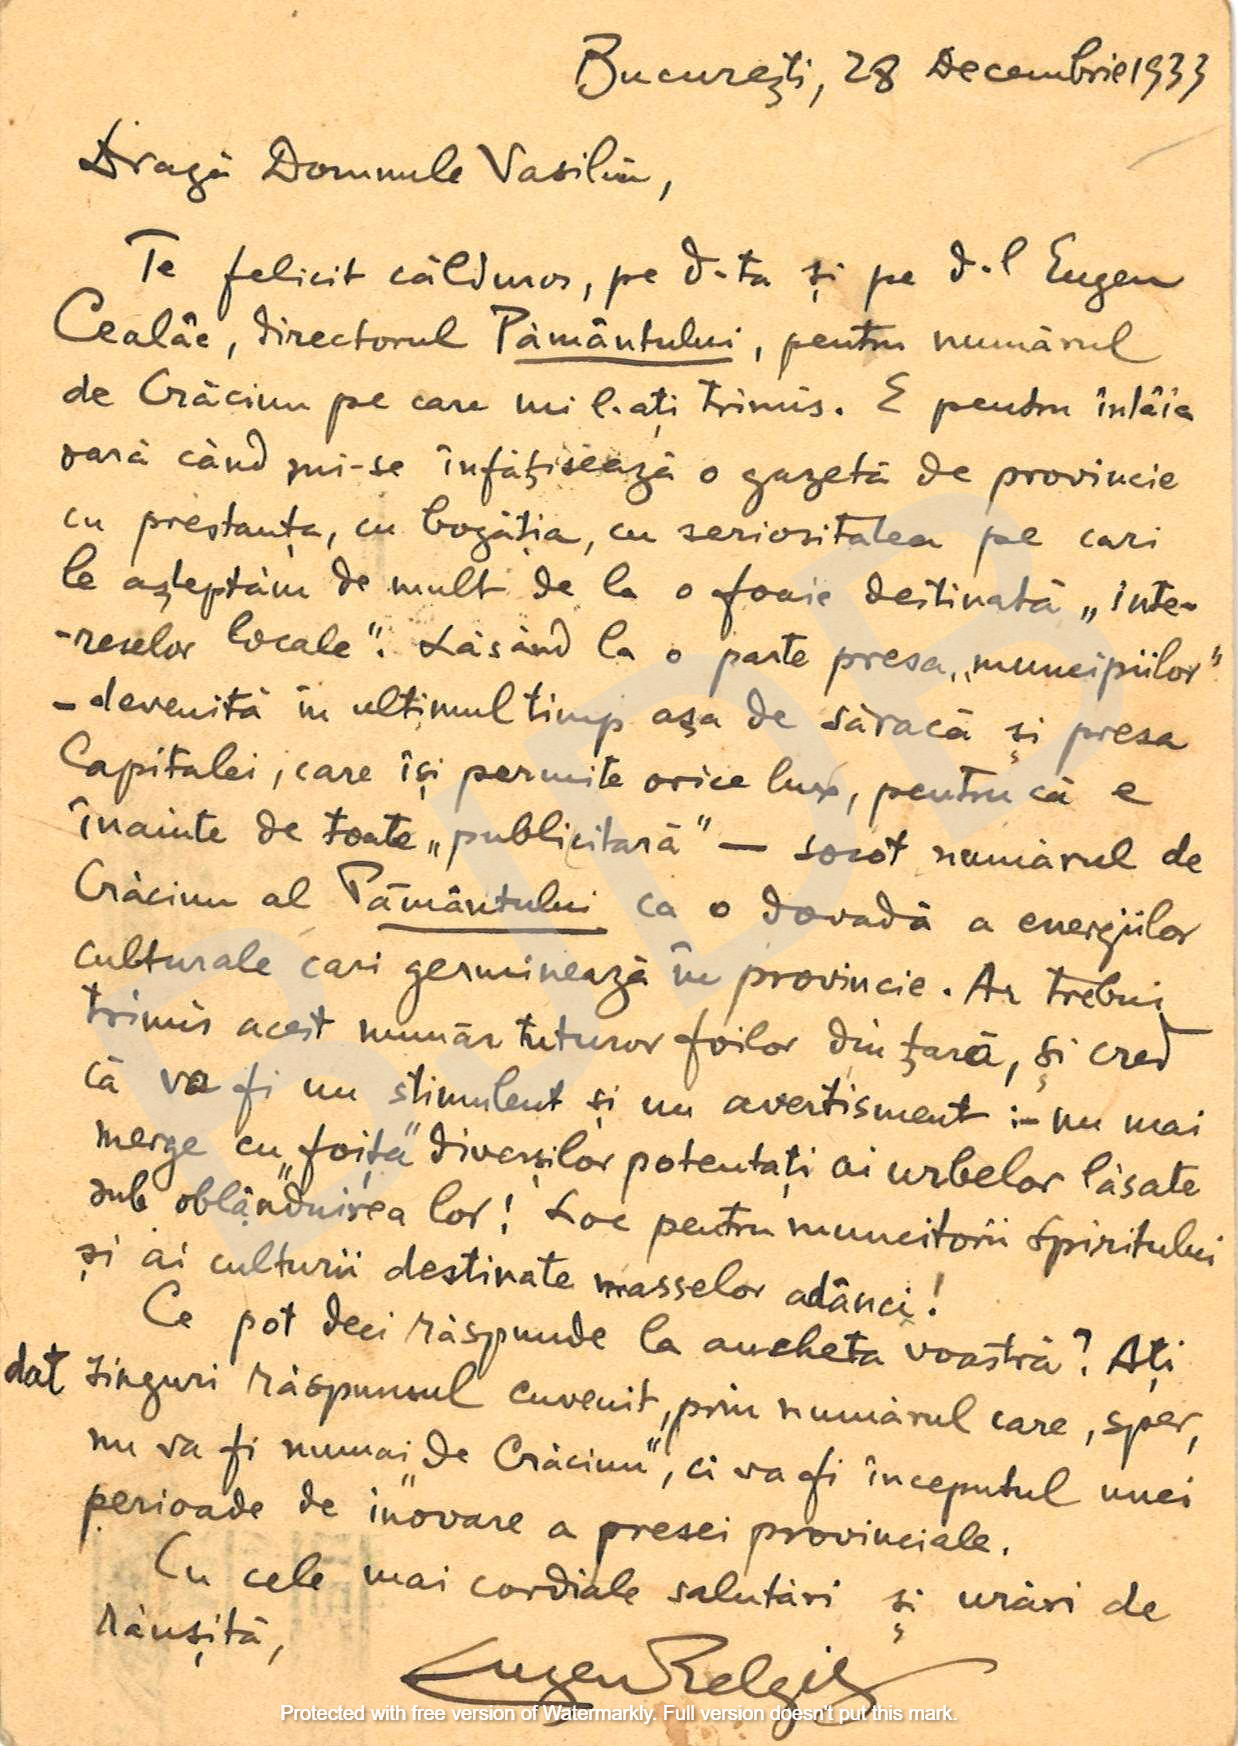 București, 28 Decembrie 1933
Dragă Domnule Vasiliu,
Te felicit călduros, pe d-ta și pe d-l Eugen
Cealâc, directorul Pământului, pentru numărul
de Crăciun pe care mi l-ați trimis. E pentru întâia
oară când mi-se înfățisează o gazetă de provincie
cu prestanța, cu bogăția, cu seriozitatea pe cari
le așteptăm de mult de la o foaie destinată „inte-
-reselor locale". Lăsând la o parte presa „municipiilor"
– devenită în ultimul timp așa de săracă și presa
Capitalei, care își permite orice lux, pentrucă e
înainte de toate „publicitară" — socot numărul de
Crăciun al Pământului ca o dovadă a energiilor
culturale cari germinează în provincie. Ar trebui
trimis acest număr tuturor foilor din țară, și cred
că va fi un stimulent și un avertisment :- nu mai
merge cu „foița" diverșilor potentați ai urbelor lăsate
sub oblânduirea lor! Loc pentru muncitorii spiritului
și ai culturii destinate masselor adânci!
Ce pot deci răspunde la ancheta voastră? Ați
dat singuri răspunsul cuvenit, prin numărul care, sper,
nu va fi numai „de Crăciun", ci va fi începutul unei
perioade de inovare a presei provinciale.
Cu cele mai cordiale salutări și urări de
răușită,
Eugen Relgis
Protected with free version of Watermarkly. Full version doesn't put this mark.
BJDB